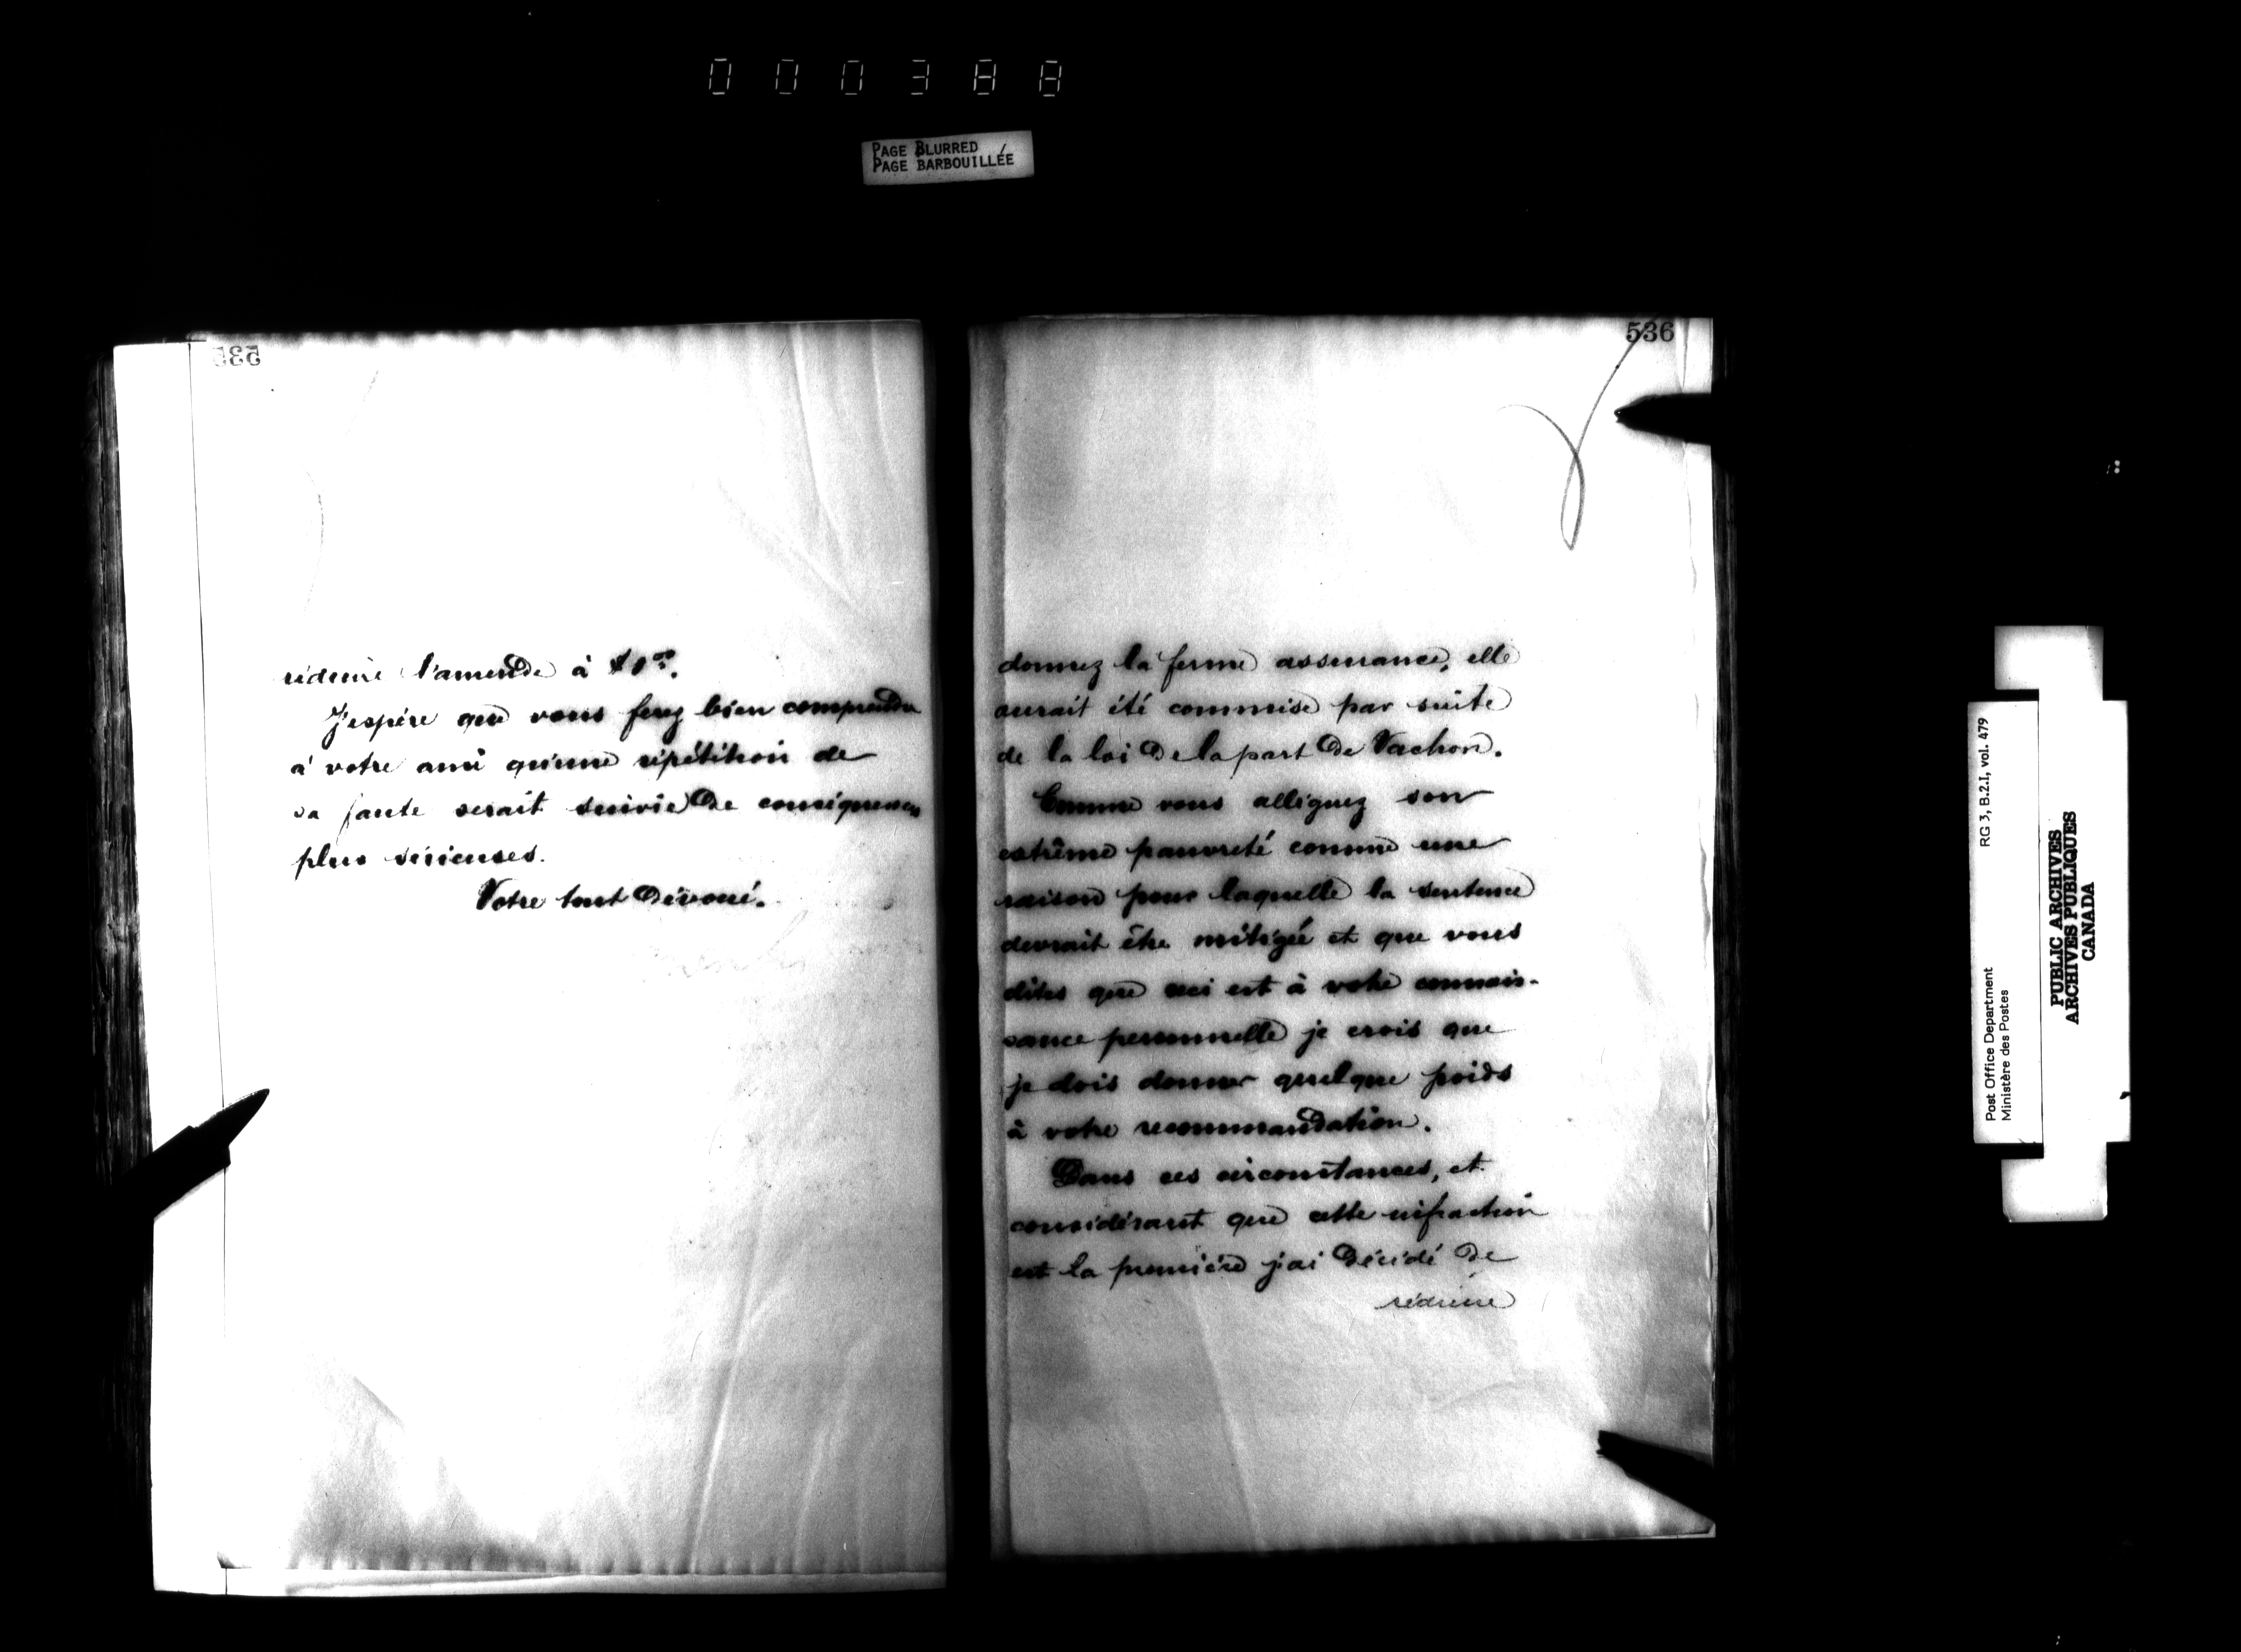 000388
PAGE BLURRED
PAGE BARBOUILLÉE
535
réduire l'amende à $1.00.
J'espère que vous ferez bien comprendre
à votre ami qu'une répétition de
sa faute serait suivie de conséquences
plus sérieuses.
Votre tout dévoué.
536
donnez la ferme assurance, elle
aurait été commise par suite
de la loi de la part de Vachon.
Comme vous alléguez son
extrême pauvreté comme une
raison pour laquelle la sentence
devrait être mitigée et que vous
dites que ceci est à votre connais-
sance personnelle je crois que
je dois donner quelque poids
à votre recommandation.
Dans ces circonstances, et
considérant que cette infraction
est la première j'ai décidé de
réduire
RG 3, B.2.I, vol. 479
Post Office Department
Ministère des Postes
PUBLIC ARCHIVES
ARCHIVES PUBLIQUES
CANADA